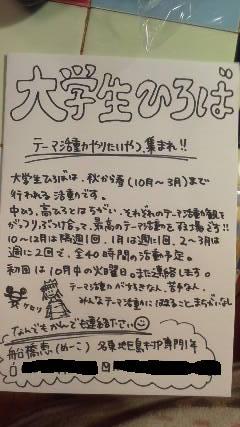 大学生ひろば
テーマ活動がやりたいやつ、集まれ!!
大学生ひろばは、秋から春(10月〜3月)まで
行われる活動です。
中ひろ、高ひろとはちがい、それぞれのテーマ活動観を
がっつりぶつけ合って、最高のテーマ活動をする場です!!
10〜12月は隔週1回、1月は週に1回、2〜3月は
週に2回で、全40時間の活動予定。
初回は10月中の火曜日。また連絡します。
テーマ活動がすきな人、苦手な人、
みんなテーマ活動にはまること、まちがいなし
ケロリ
なんでもかんでも連絡ください
船橋恵(めーこ) 名東地区 専門1年